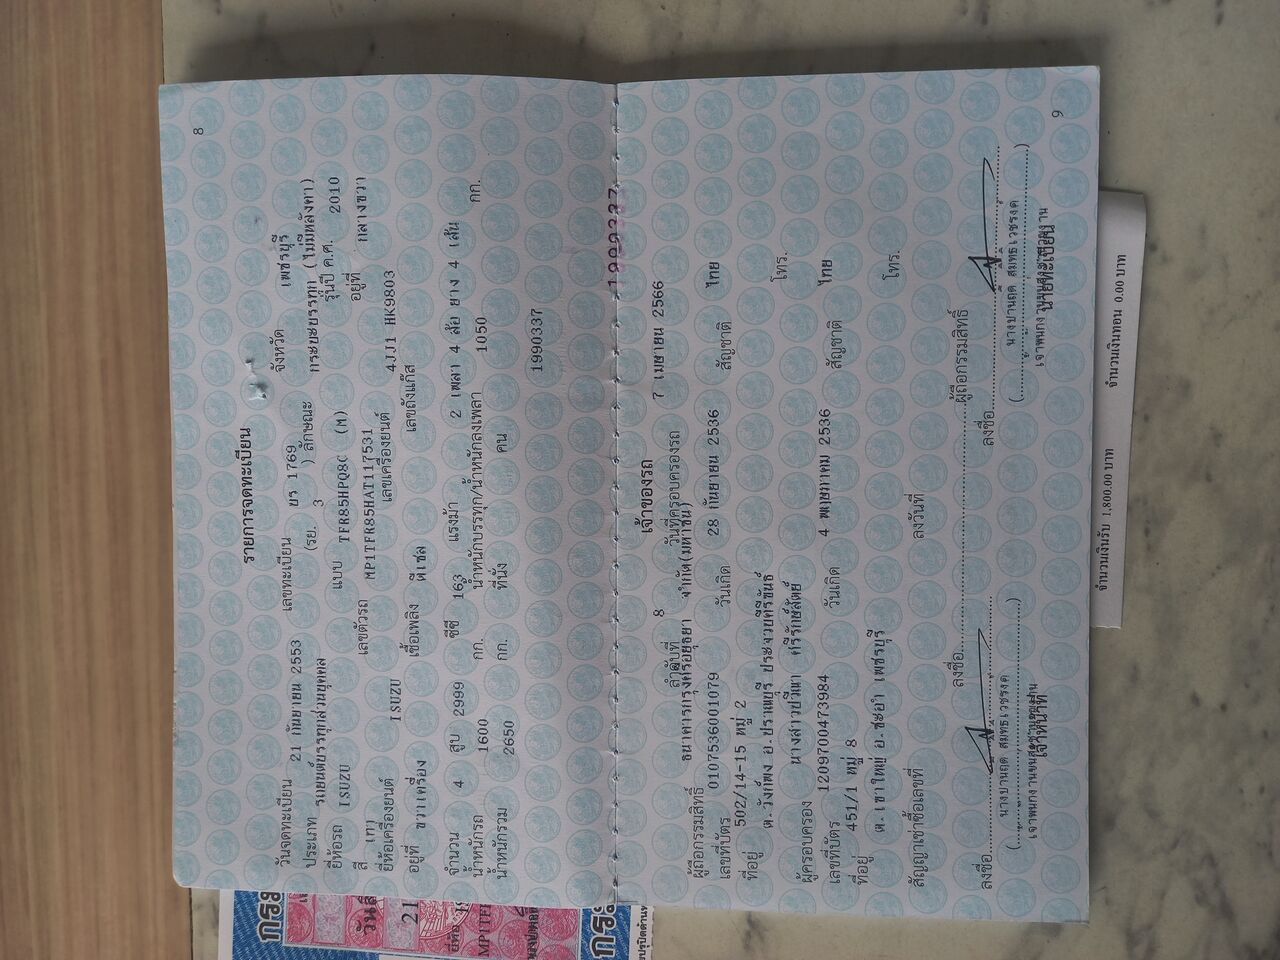 8
รายการจดทะเบียน
วันจดทะเบียน 21 กันยายน 2553 เลขทะเบียน บร 1769 จังหวัด เพชรบุรี
ประเภท รถยนต์บรรทุกส่วนบุคคล (รย. 3 ) ลักษณะ กระบะบรรทุก (ไม่มีหลังคา)
ยี่ห้อรถ ISUZU แบบ TFR85HPQ8C (M) รุ่นปี ค.ศ. 2010
สี เทา เลขตัวรถ MP1TFR85HAT117531 อยู่ที่ กลางขวา
ยี่ห้อเครื่องยนต์ ISUZU เลขเครื่องยนต์ 4JJ1 HK9803
อยู่ที่ ขวาเครื่อง เชื้อเพลิง ดีเซล เลขถังแก๊ส
จำนวน 4 สูบ 2999 ซีซี 163 แรงม้า 2 เพลา 4 ล้อ ยาง 4 เส้น
น้ำหนักรถ 1600 กก. น้ำหนักบรรทุก/น้ำหนักลงเพลา 1050 กก.
น้ำหนักรวม 2650 กก. ที่นั่ง คน
1990337
1990337
เจ้าของรถ
ลำดับที่ 8 วันที่ครอบครองรถ 7 เมษายน 2566
ผู้ถือกรรมสิทธิ์ ธนาคารกรุงศรีอยุธยา จำกัด(มหาชน)
เลขที่บัตร 0107536001079 วันเกิด 28 กันยายน 2536 สัญชาติ ไทย
ที่อยู่ 502/14-15 หมู่ 2
ต.วังก์พง อ.ปราณบุรี ประจวบคีรีขันธ์ โทร.
ผู้ครอบครอง นางสาวปวีณา ศรีรักษ์สัตย์
เลขที่บัตร 1209700473984 วันเกิด 4 พฤษภาคม 2536 สัญชาติ ไทย
ที่อยู่ 451/1 หมู่ 8
ต.เขาใหญ่ อ.ชะอำ เพชรบุรี โทร.
สัญญาเช่าซื้อเลขที่ ลงวันที่
ลงชื่อ ผู้ถือกรรมสิทธิ์
ลงชื่อ ลงชื่อ
เจ้าหน้าที่ นายทะเบียน
9
จำนวนเงินรับ 1,800.00 บาท จำนวนเงินทอน 0.00 บาท
21
MP1TFR